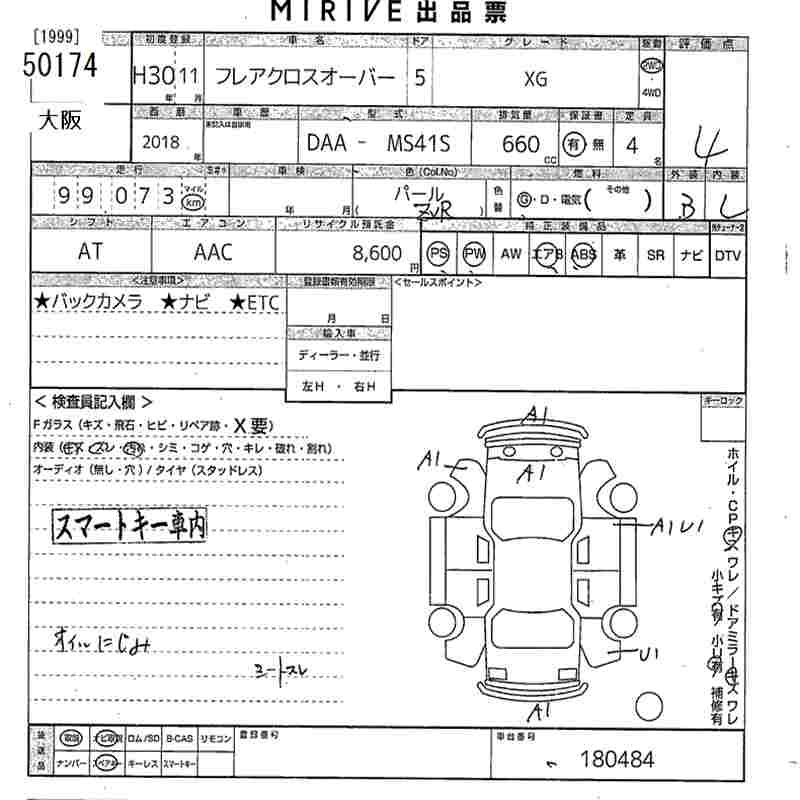 MIRIVE 出品票
[1999]
50174
大阪
初度登録 車名 ドア グレード 駆動 評価点
H30 11 フレアクロスオーバー 5 XG 2WD
年 月 4WD
西暦 車歴 型式 排気量 保証書 定員
2018 年 DAA - MS41S 660 cc 有 無 4 名 4
走行 車検 色(Col.No) 燃料 外装 内装
99,073 マイル km 年 月 パール ZVR 色替 G・D・電気( その他 ) B
シフト エアコン リサイクル預託金 純正装備品
AT AAC 8,600 円 PS PW AW エアB ABS 革 SR ナビ DTV
<注意事項> 登録書類有効期限 <セールスポイント>
★バックカメラ ★ナビ ★ETC
月 日
輸入車
ディーラー・並行
左H ・ 右H
< 検査員記入欄 > キーロック
Fガラス (キズ・飛石・ヒビ・リペア跡・X要)
内装 (キズ スレ・汚れ・シミ・コゲ・穴・キレ・破れ・割れ)
オーディオ (無し・穴) / タイヤ (スタッドレス)
A1
A1
A1
スマートキー車内
A1U1
オイルにじみ
シートスレ
U1
A1
ホイル・CPキズ ワレ / ドアミラーキズ ワレ
小キズ有 小U有 補修有
後送品 取説 ナビ取説 ロム/SD B-CAS リモコン 登録番号 車台番号
ナンバー スペアキー キーレス スマートキー 180484